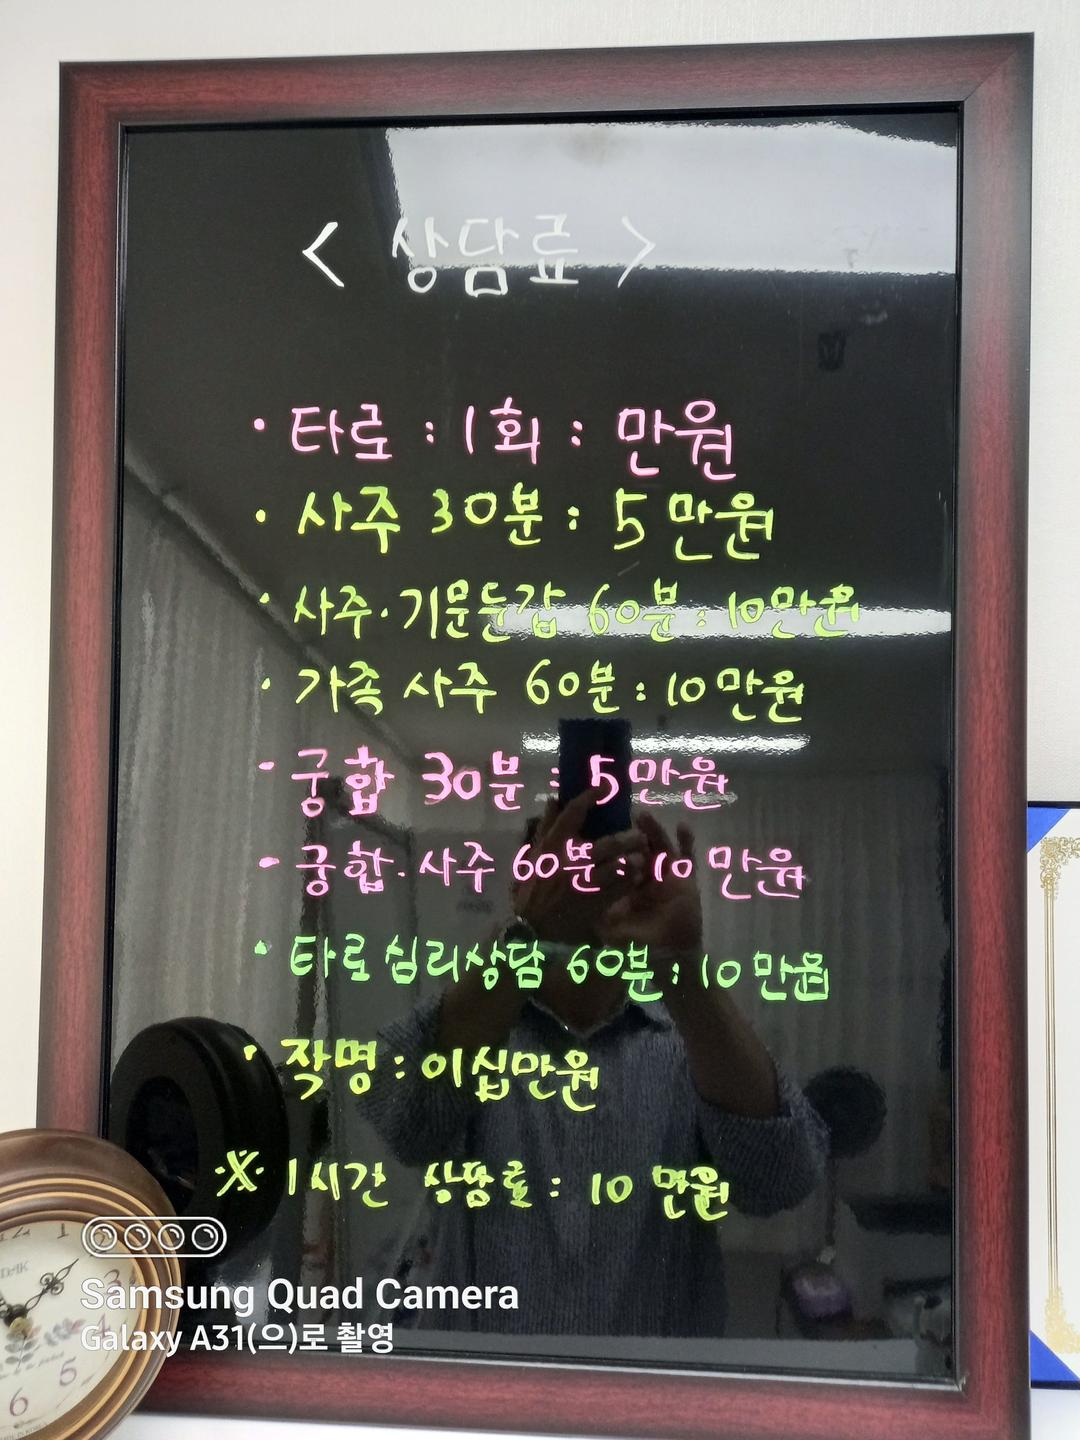 < 상담료 >
· 타로 : 1회 : 만원
· 사주 30분 : 5만원
· 사주·기문둔갑 60분 : 10만원
· 가족 사주 60분 : 10만원
· 궁합 30분 : 5만원
· 궁합·사주 60분 : 10만원
· 타로심리상담 60분 : 10만원
· 작명 : 이십만원
※ 1시간 상담료 : 10만원
Samsung Quad Camera
Galaxy A31(으)로 촬영
1
3
4
5
6